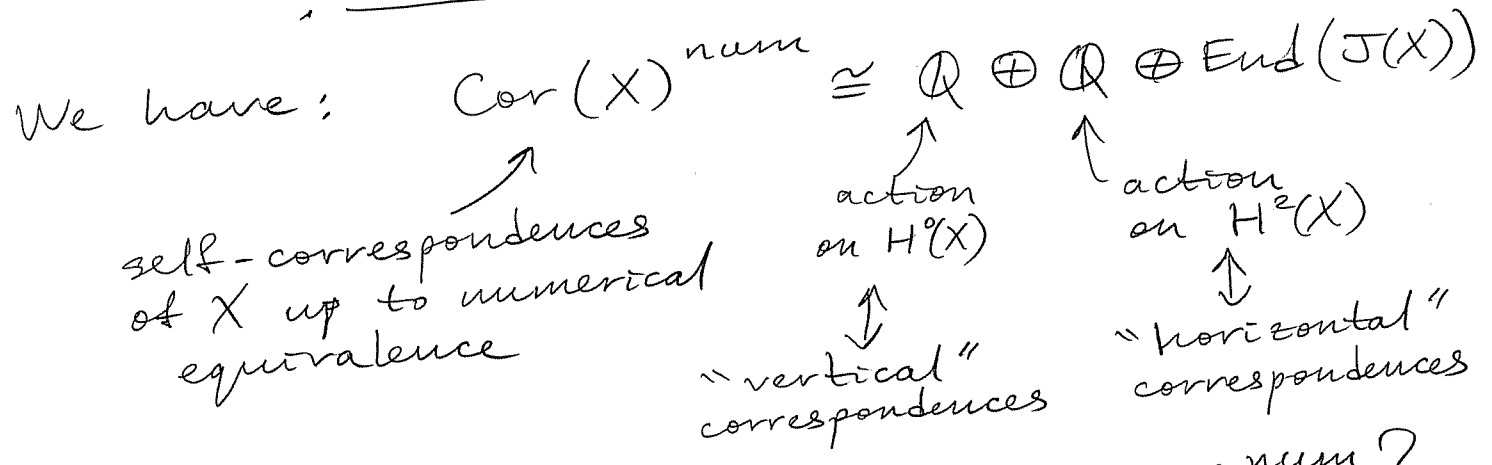 We have: Cor(X)^num ≅ ℚ ⊕ ℚ ⊕ End(J(X))
self-correspondences of X up to numerical equivalence
action on H⁰(X)
"vertical" correspondences
action on H²(X)
"horizontal" correspondences
num?